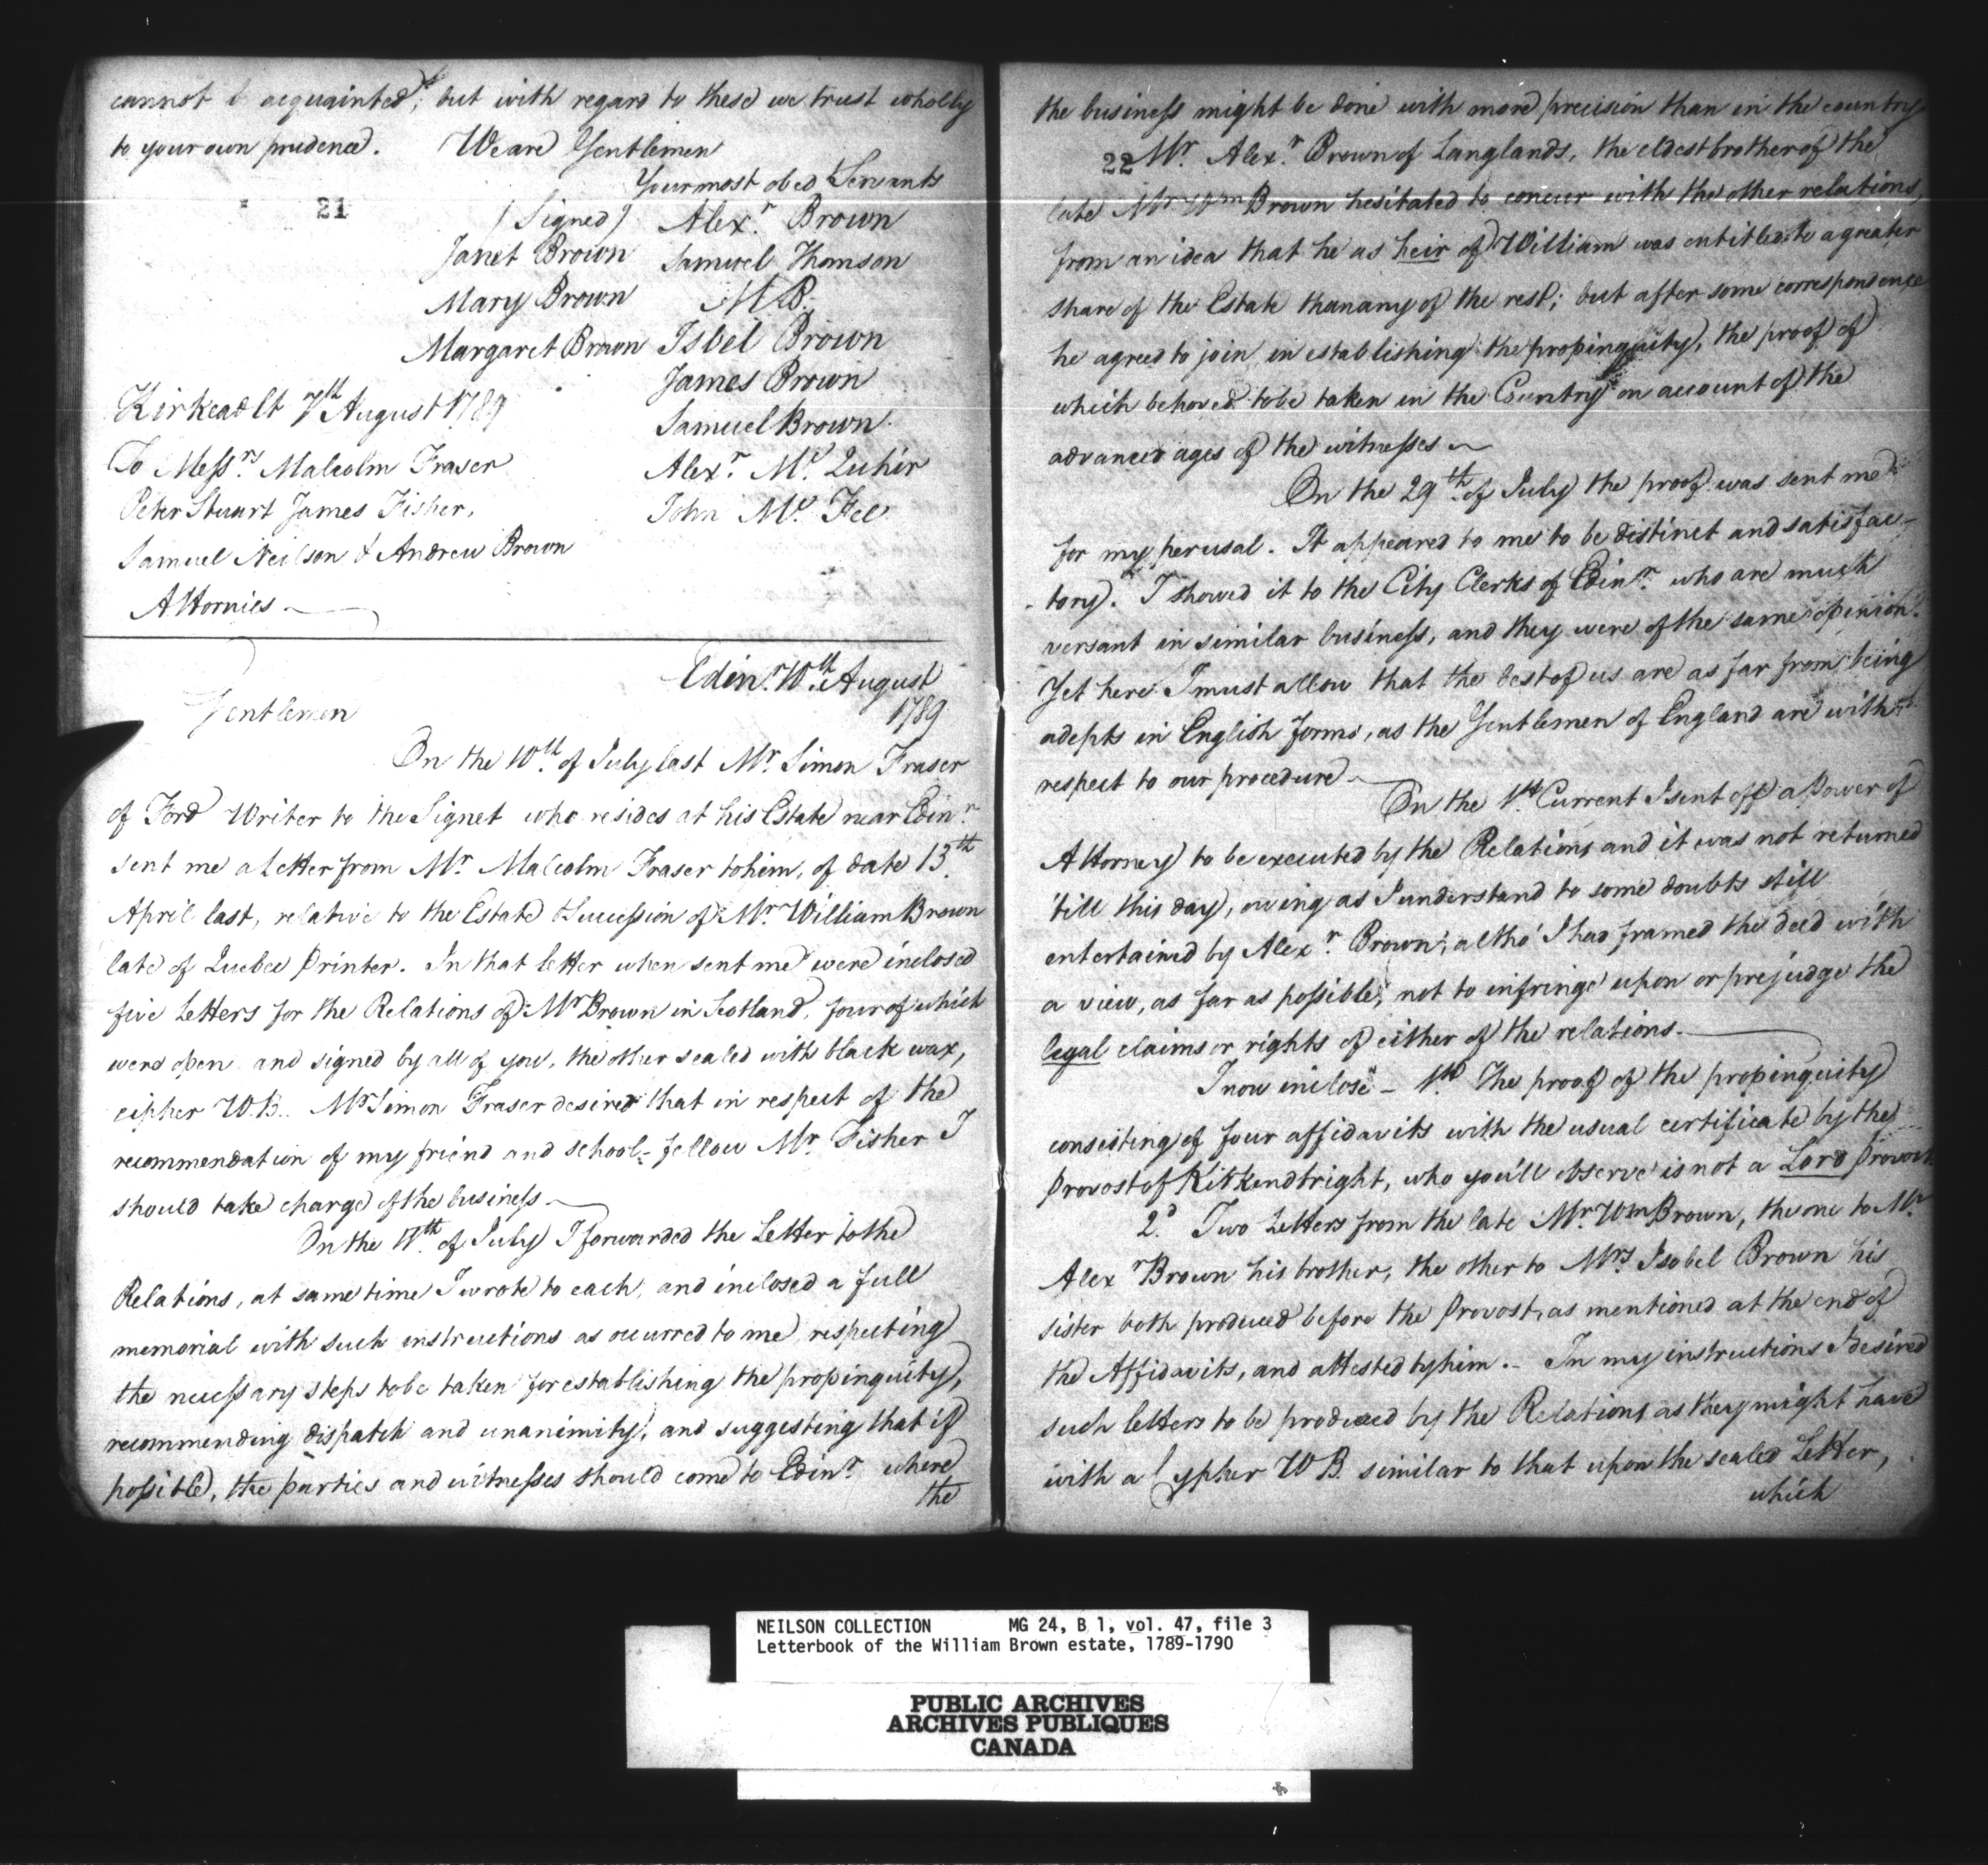 cannot b acquainted; but with regard to these we trust wholly
to your own prudence. We are Gentlemen
Your most obed Servants
21
(Signed) Alexr. Brown
Janet Brown Samuel Thomson
Mary Brown M B.
Margaret Brown Isbel Brown
James Brown
Kirkcadlt 7th August 1789
Samuel Brown.
To Messrs. Malcolm Fraser
Alexr. Mc Quhir
Peter Stuart James Fisher,
John Mc. Fee
Samuel Neilson & Andrew Brown
Attornies
Edinr. 10th August
1789
Gentlemen
On the 10th. of July last Mr. Simon Fraser
of Ford Writer to the Signet who resides at his Estate near Edinr.
sent me a Letter from Mr. Malcolm Fraser to him, of date 13th.
April last, relative to the Estate & Succession of Mr. William Brown
late of Quebec Printer. In that letter when sent me were inclosed
five Letters for the Relations of Mr Brown in Scotland, four of which
were open and signed by all of you, the other sealed with black wax,
cipher W.B. Mr Simon Fraser desired that in respect of the
recommendation of my friend and school-fellow Mr. Fisher I
should take charge of the business
On the 11th. of July I forwarded the Letter to the
Relations, at same time I wrote to each, and inclosed a full
memorial with such instructions as occurred to me respecting
the necessary steps to be taken for establishing the propinquity,
recommending dispatch and unanimity, and suggesting that if
possible, the parties and witnesses should come to Edinr. where
the
the business might be done with more precision than in the country
22 Mr. Alexr. Brown of Langlands, the eldest brother of the
late Mr Wm Brown hesitated to concur with the other relations,
from an idea that he as heir of William was entitled to a greater
share of the Estate than any of the rest; but after some correspondence
he agreed to join in establishing the propinquity, the proof of
which behoved to be taken in the Country on account of the
advanced ages of the witnesses
On the 29th. of July the proof was sent me
for my perusal. It appeared to me to be distinct and satisfac-
-tory. I showed it to the City Clerks of Edinr. who are much
versant in similar business, and they were of the same opinion.
Yet here I must allow that the best of us are as far from being
adepts in English forms, as the Gentlemen of England are with
respect to our procedure
On the 1st. Current I sent off a Power of
Attorney to be executed by the Relations and it was not returned
'till this day, owing as I understand to some doubts still
entertained by Alexr Brown, altho' I had framed the deed with
a view, as far as possible, not to infringe upon or prejudge the
legal claims or rights of either of the relations.
I now inclose - 1st. The proof of the propinquity
consisting of four affidavits with the usual certificate by the
Provost of Kirkendtright, who you'll observe is not a Lord Provost
2d. Two Letters from the late Mr. Wm Brown, the one to Mr.
Alexr Brown his brother, the other to Mrs Isobel Brown his
sister both produced before the Provost, as mentioned at the end of
the Affidavits, and attested by him. - In my instructions I desired
such letters to be produced by the Relations as they might have
with a Cypher W B. similar to that upon the sealed Letter,
which
NEILSON COLLECTION MG 24, B 1, vol. 47, file 3
Letterbook of the William Brown estate, 1789-1790
PUBLIC ARCHIVES
ARCHIVES PUBLIQUES
CANADA